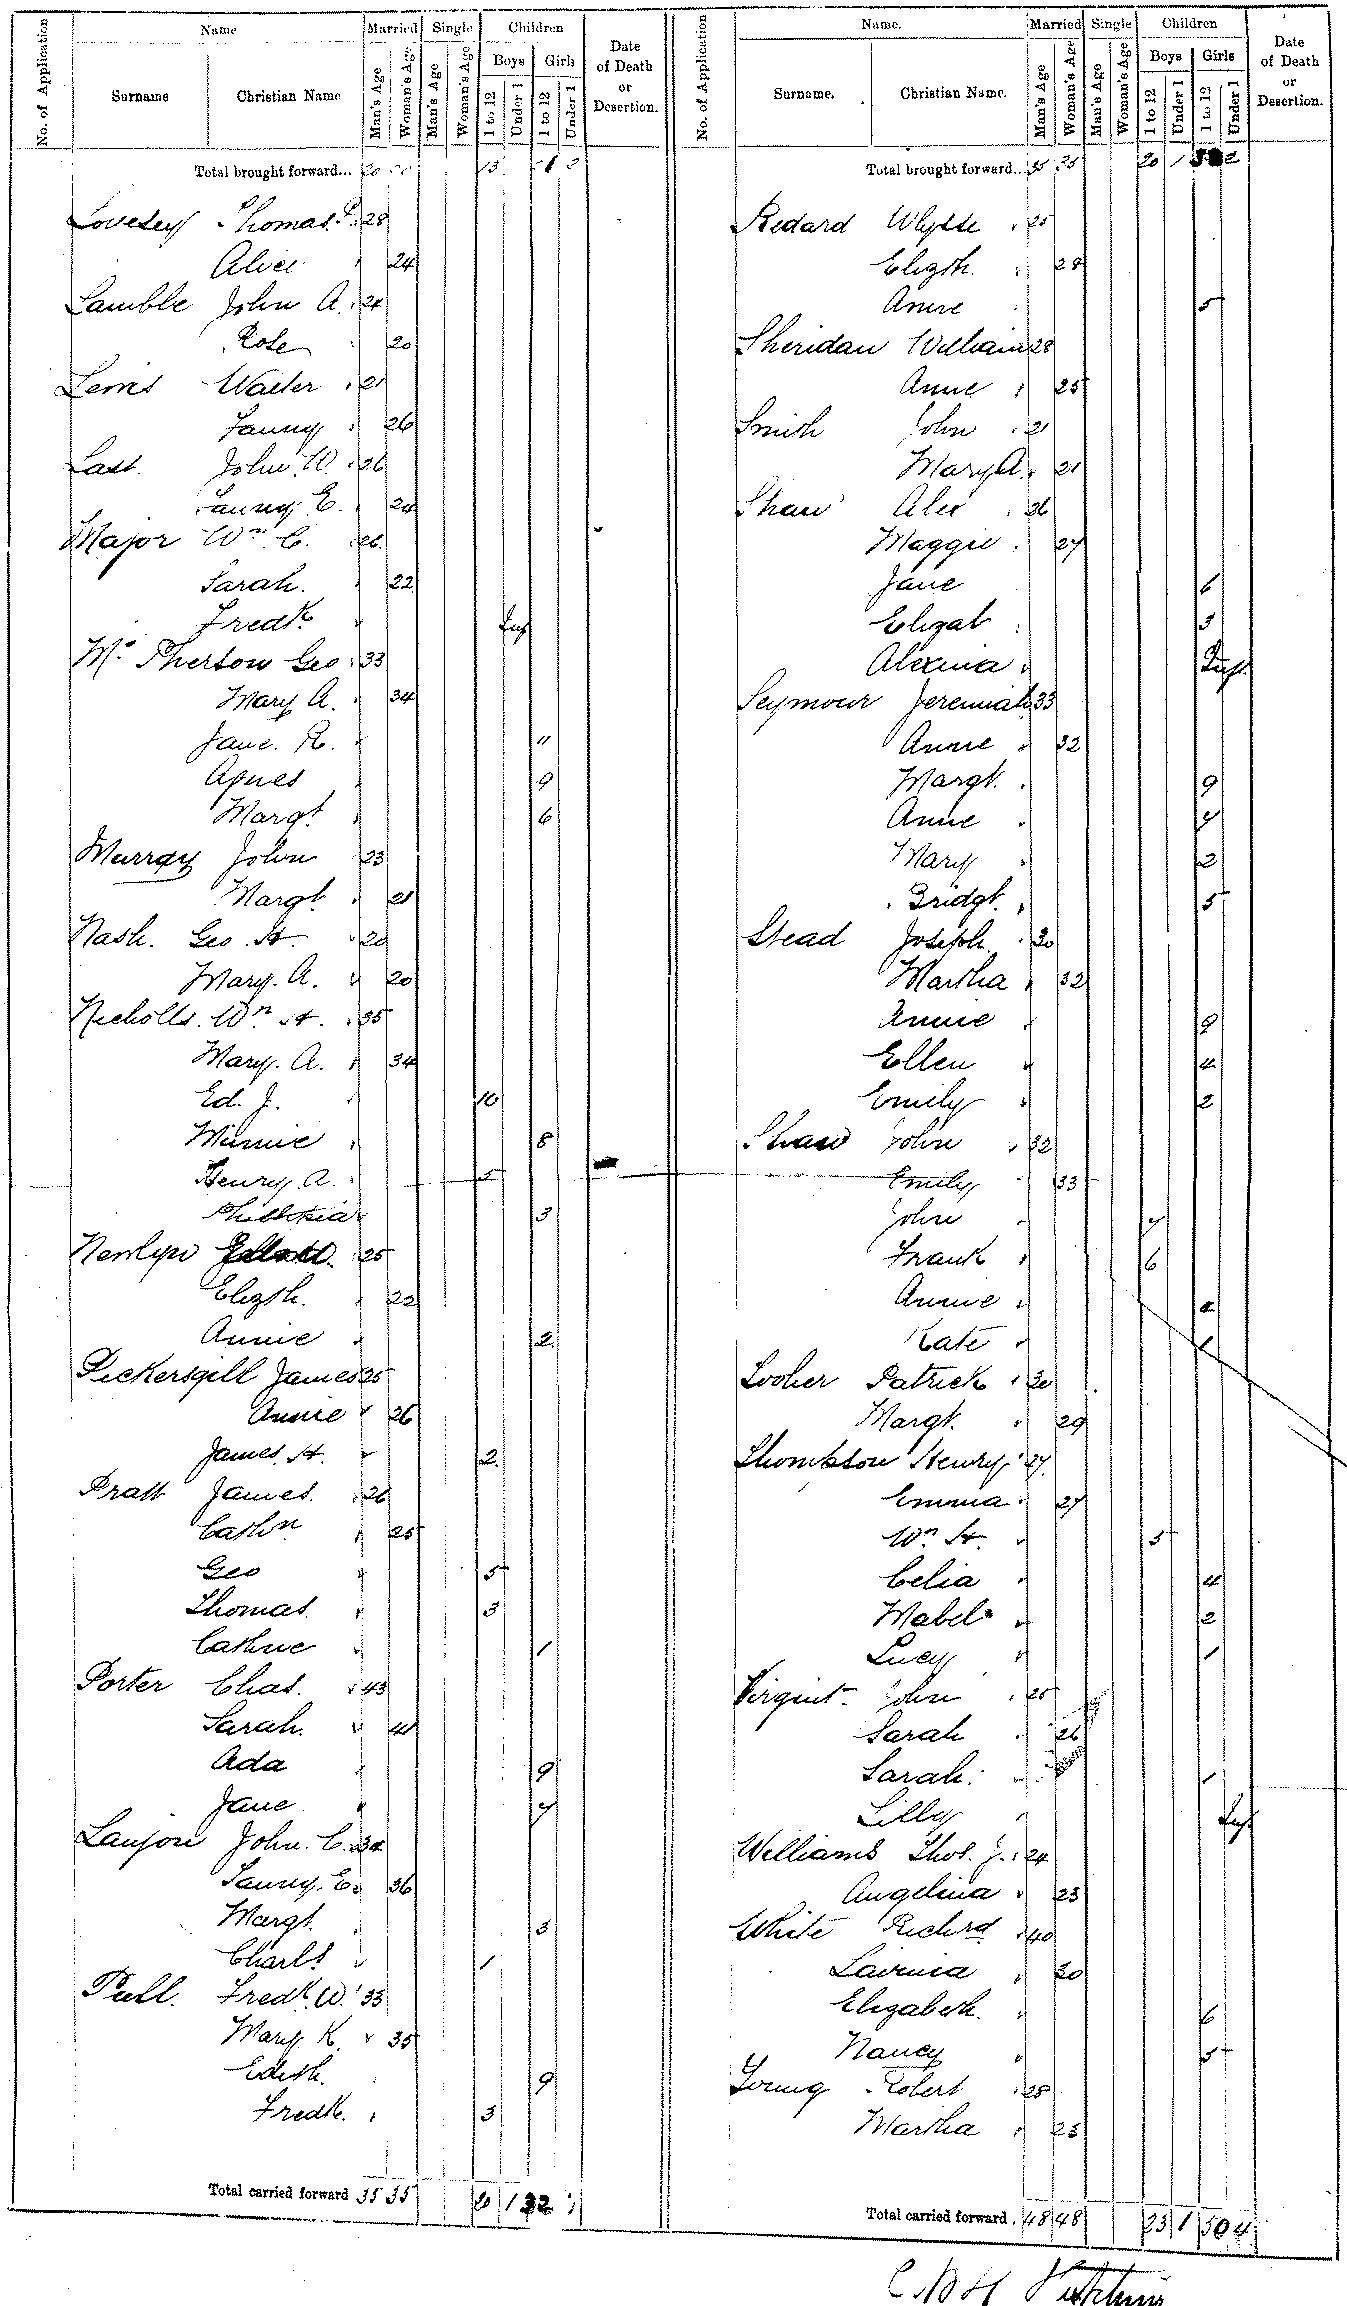 No. of Application Name Married Single Children Date of Death or Desertion.
Surname Christian Name Man's Age Woman's Age Man's Age Woman's Age Boys Girls
1 to 12 Under 1 1 to 12 Under 1
Total brought forward... 20 13
Lovesey Thomas 28
Alice 24
Lamble John A. 24
Rose 20
Lewis Walter 21
Fanny 26
Last John W. 26
Fanny E. 24
Major Wm C. 26
Sarah 22
Fredk Inf
Mc Pherson Geo 33
Mary A. 34
Jane R. 11
Agnes 9
Margt 6
Murray John 23
Margt 21
Nash Geo H 20
Mary A. 20
Nicholls Wm H. 35
Mary A. 34
Ed. J. 10
Minnie 8
Henry A. 5
3
Newlyn 25
Elizth. 22
Annie 2
Pickersgill James 25
Annie 26
James H. 2
Pratt James 26
Cathn 25
Geo 5
Thomas 3
Cathne 1
Porter Chas. 43
Sarah 41
Ada 9
Jane 7
John C. 34
Fanny E. 36
Margt 3
Charls 1
Pull Fredk W. 33
Mary K. 35
Edith 9
Fredk. 3
Total carried forward 35 35 20 1 32
No. of Application Name. Married Single Children Date of Death or Desertion.
Surname. Christian Name. Man's Age Woman's Age Man's Age Woman's Age Boys Girls
1 to 12 Under 1 1 to 12 Under 1
Total brought forward... 35 35 20 1 2
Redard Ulysse 25
Elizth. 28
Annie 5
Sheridan William 28
Annie 25
Smith John 21
Mary A. 21
Shaw Alex 26
Maggie 27
Jane 6
Elizat 3
Alexina Inft
Seymour Jeremiah 33
Annie 32
Margt. 9
Annie 7
Mary 2
Bridgt. 5
Stead Joseph 30
Martha 32
Annie 9
Ellen 4
Emily 2
Shaw John 32
Emily 33
John 7
Frank 6
Annie 4
Kate 1
Patrick 30
Margt. 29
Thompson Henry 27
Emma 27
Wm H. 5
Celia 4
Mabel 2
Lucy 1
Virgint John 25
Sarah 26
Sarah 1
Lilly Inf
Williams Thos. J. 24
Angelina 23
White Richrd 40
Lavinia 30
Elizabeth. 6
Nancy 5
Young Robert 28
Martha 23
Total carried forward. 48 48 23 1 50 4